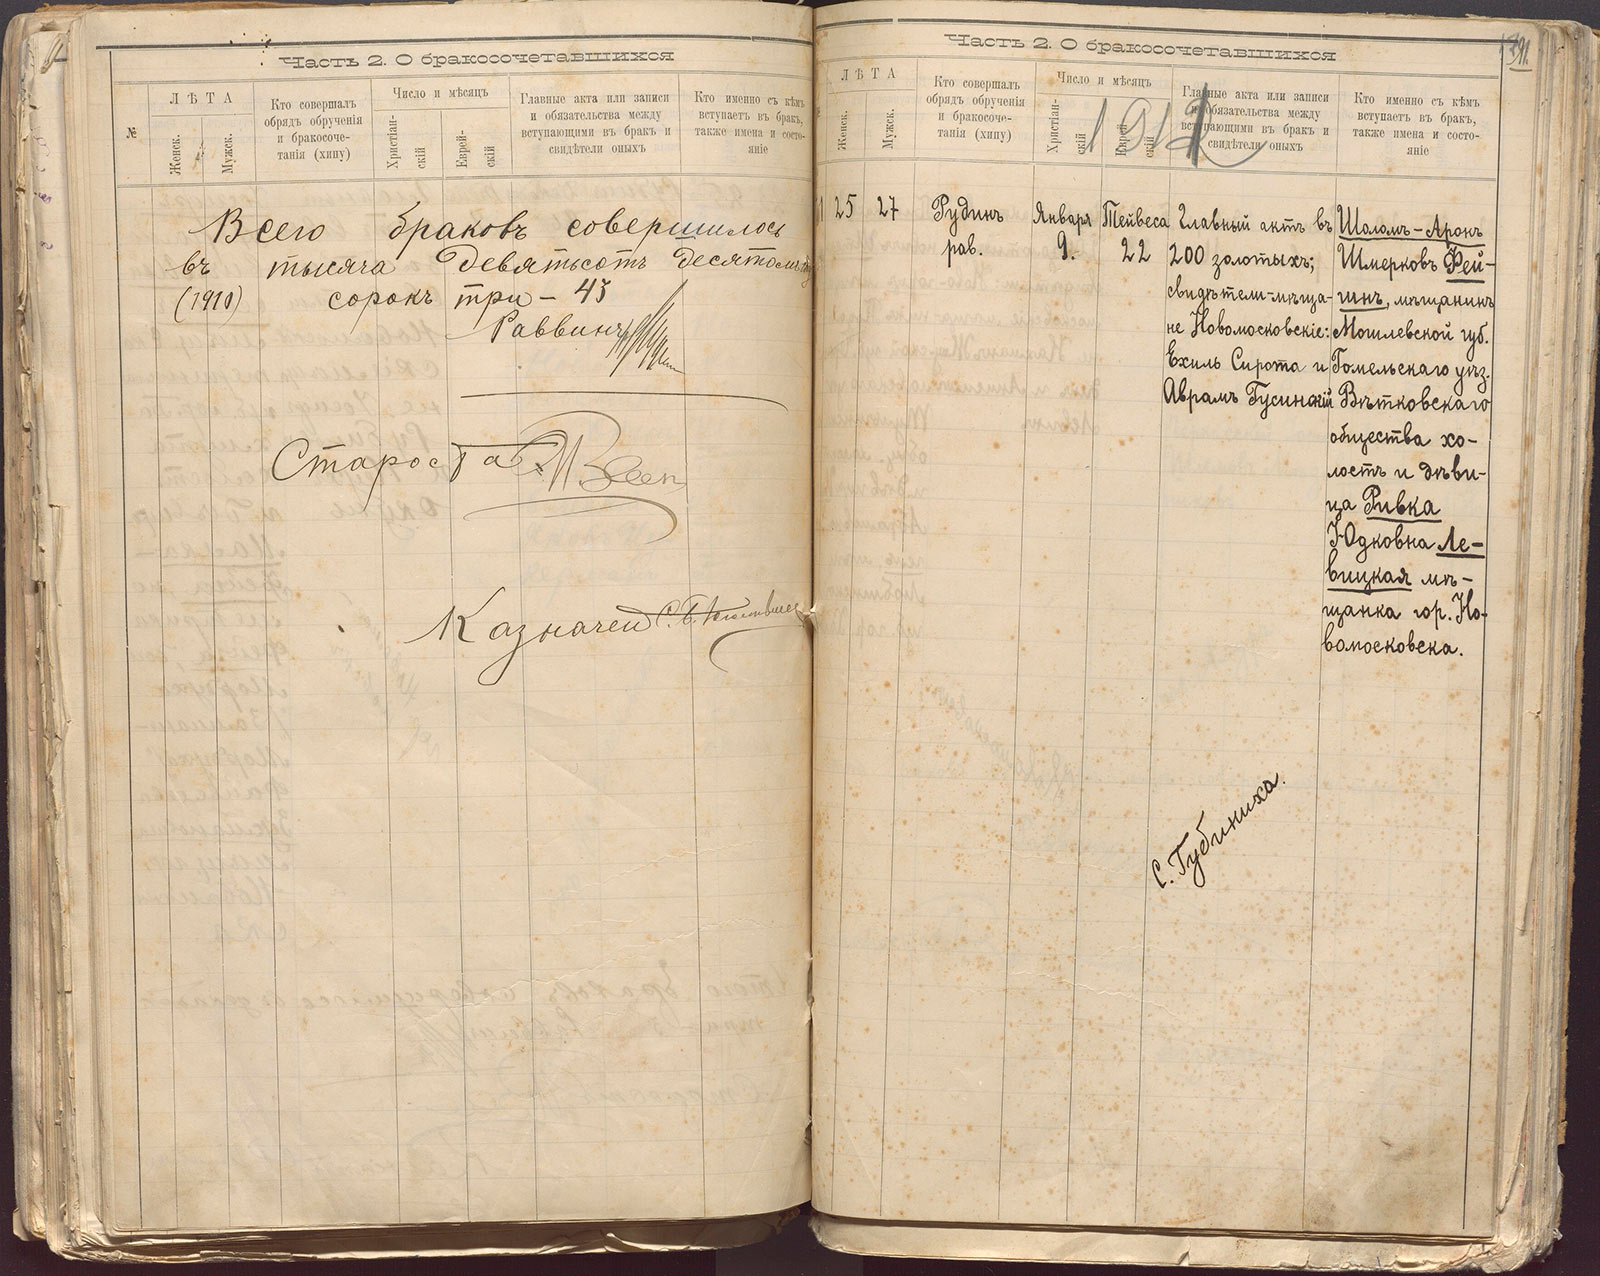 Часть 2. О бракосочетавшихся
№
ЛѢТА
Женск.
Мужск.
Кто совершалъ
обрядъ обрученія
и бракосоче-
танія (хипу)
Число и мѣсяцъ
Христіан-
скій
Еврей-
скій
Главные акта или записи
и обязательства между
вступающими въ бракъ и
свидѣтели оныхъ
Кто именно съ кѣмъ
вступаетъ въ бракъ,
также имена и состо-
яніе
Всего браковъ совершилось
въ тысяча девятьсотъ десятомъ
(1910) сорокъ три - 43
Раввинъ
Староста
Казначей
Часть 2. О бракосочетавшихся
391.
ЛѢТА
Женск.
Мужск.
Кто совершалъ
обрядъ обрученія
и бракосоче-
танія (хипу)
Число и мѣсяцъ
Христіан-
скій
Еврей-
скій
Главные акта или записи
и обязательства между
вступающими въ бракъ и
свидѣтели оныхъ
Кто именно съ кѣмъ
вступаетъ въ бракъ,
также имена и состо-
яніе
1
25
27
Рудинъ
рав.
Января
9.
Тейвеса
22
Главный актъ въ
200 золотыхъ;
свидѣтели-мѣща-
не Новомосковскіе:
Ехиль Сирота и
Аврамъ Гусинскій
Шоломъ-Аронъ
Шмерковъ Фей-
гинъ, мѣщанинъ
Могилевской губ.
Гомельскаго уѣз.
Вѣтковскаго
общества хо-
лостъ и дѣви-
ца Ривка
Юдковна Ле-
вицкая мѣ-
щанка гор. Но-
вомосковска.
С. Губиниха.